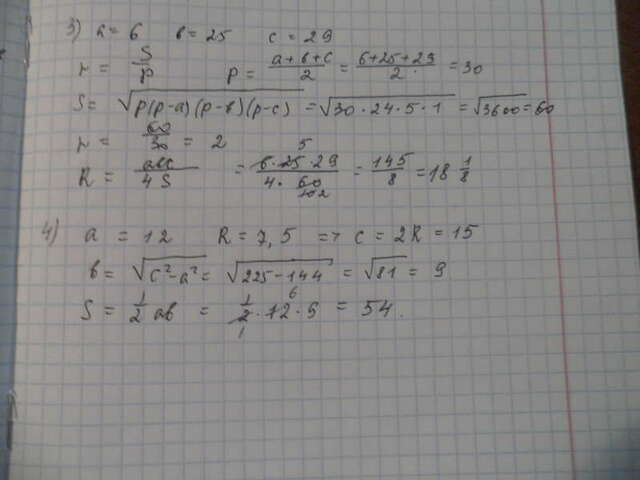 3) a = 6 в = 25 c = 29
r = S/p p = (a+в+c)/2 = (6+25+29)/2 = 30
S = √(p(p-a)(p-в)(p-c)) = √(30·24·5·1) = √3600 = 60
r = 60/30 = 2 5
R = aвc/4S = (6·25·29)/(4·60) = 145/8 = 18 1/8
4) a = 12 R = 7,5 => c = 2R = 15
в = √(c²-a²) = √(225-144) = √81 = 9
S = 1/2 aв = 1/2 · 12 · 9 = 54.